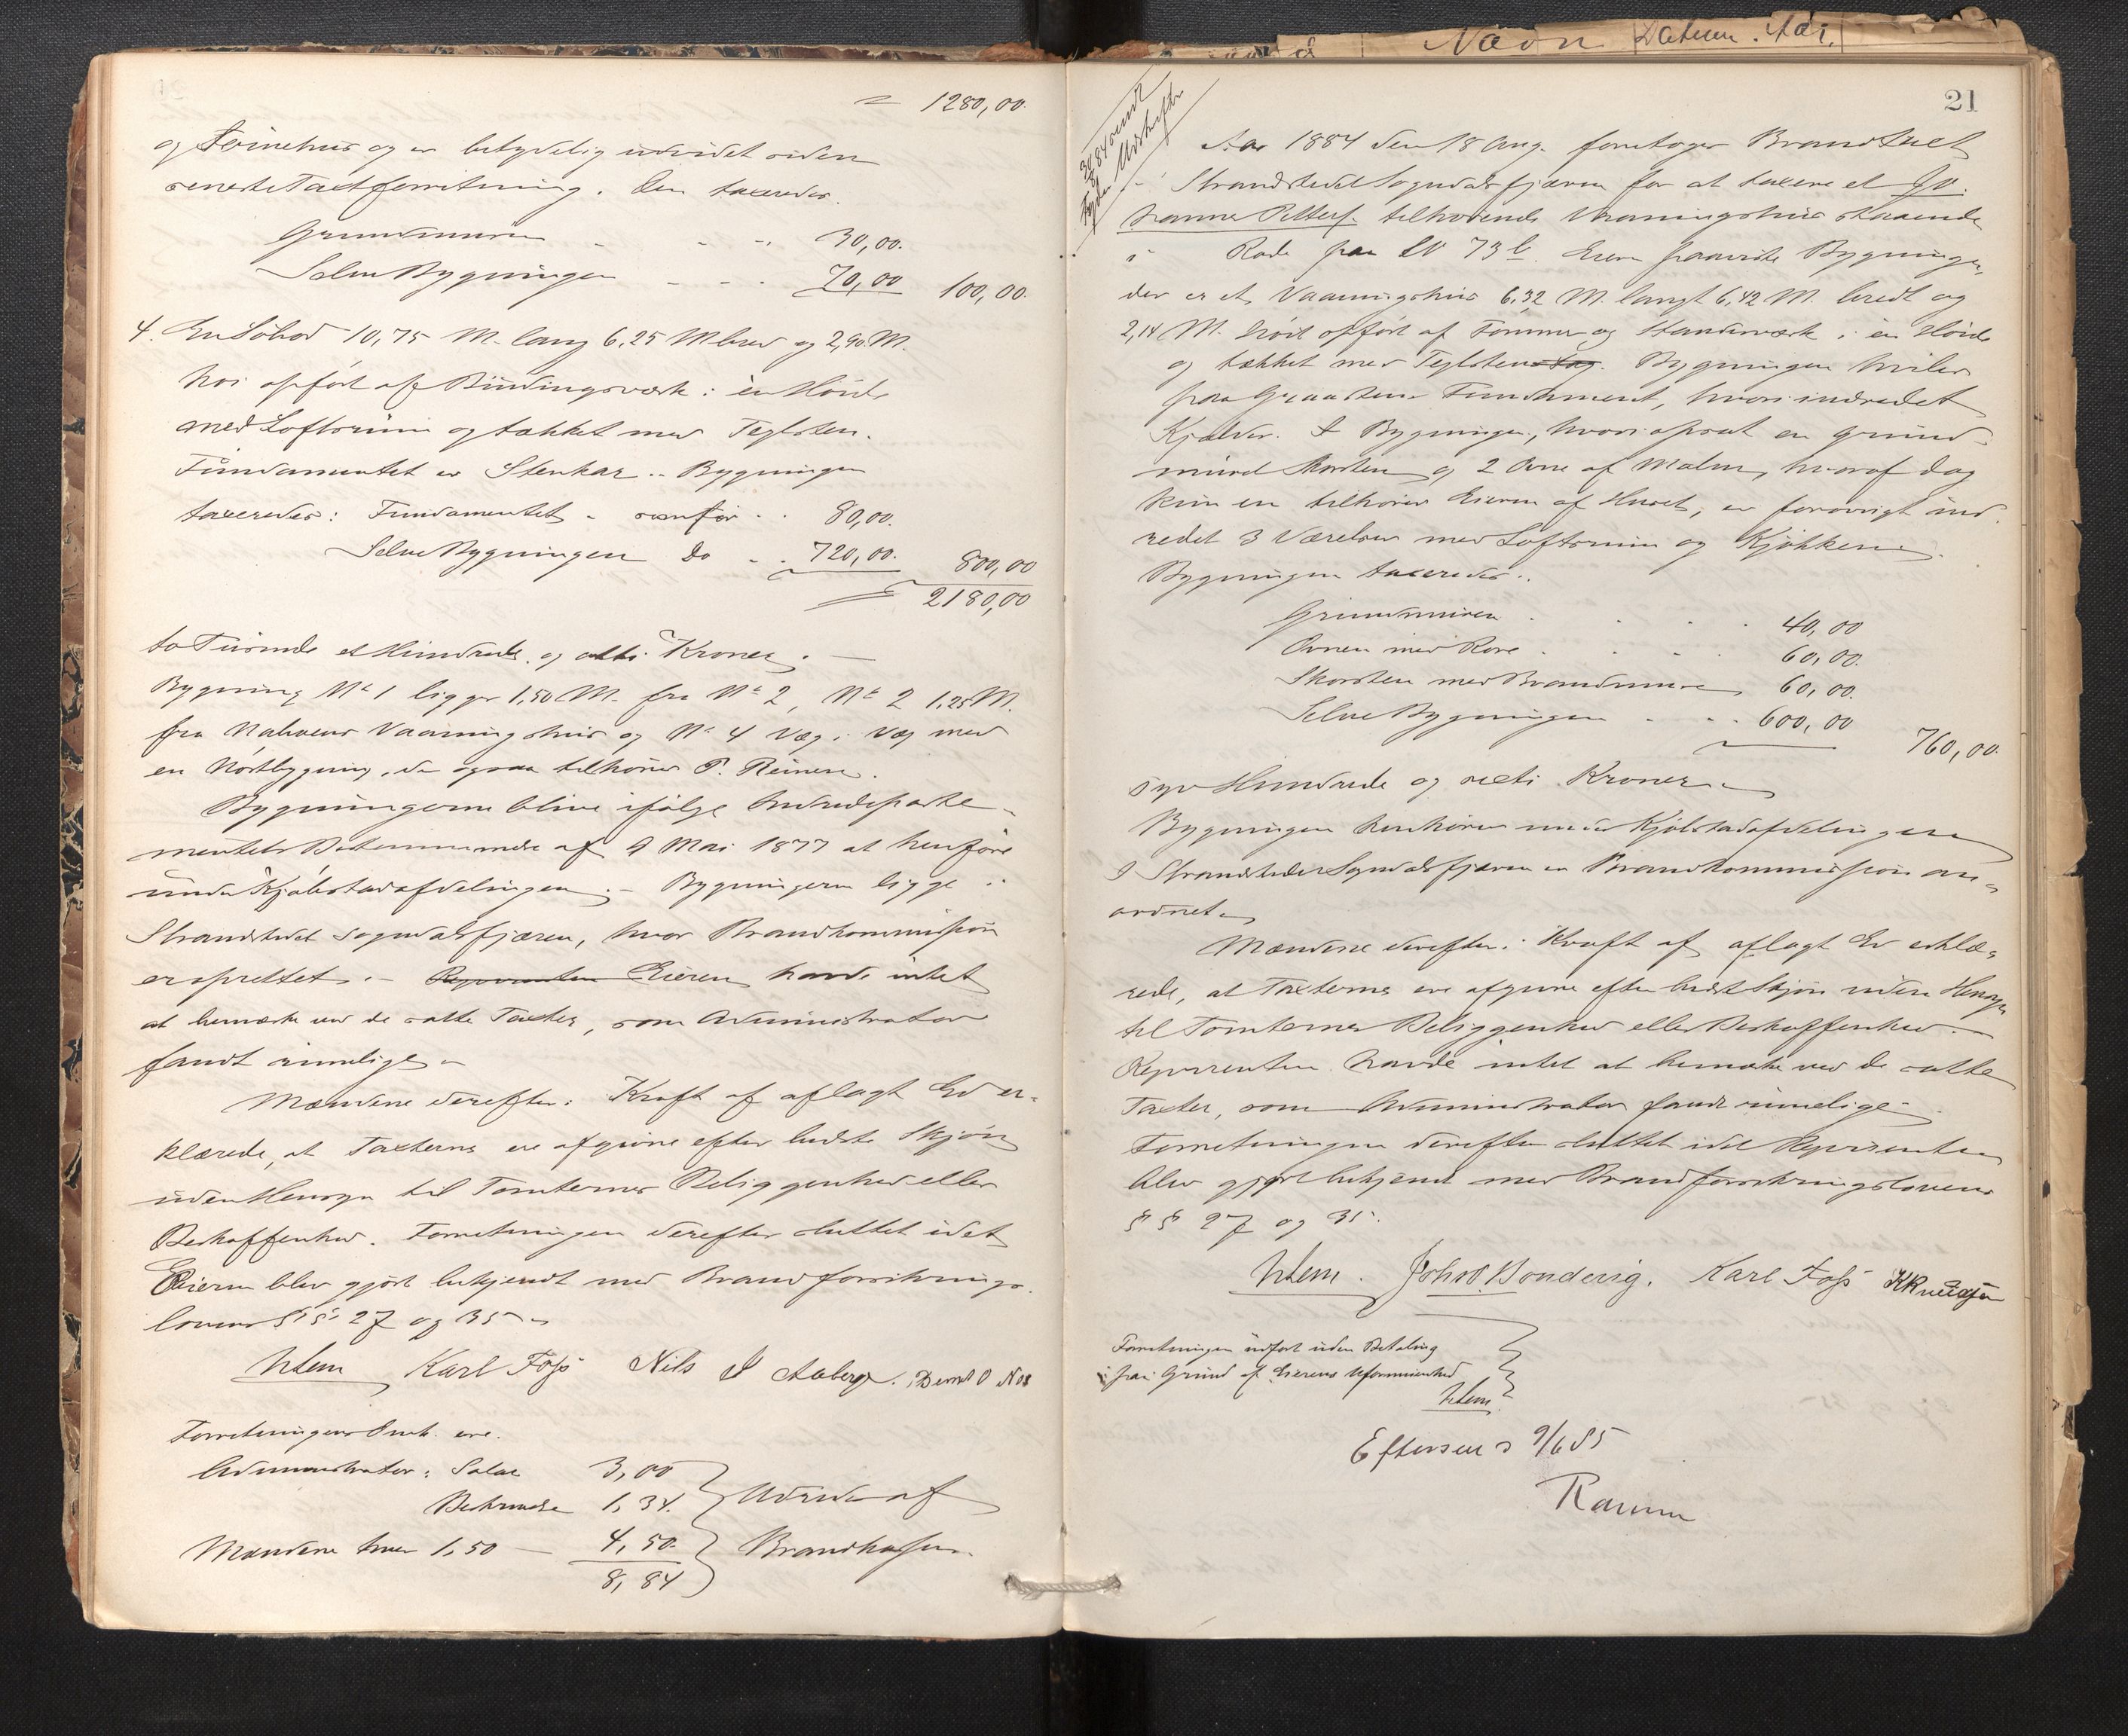 = 1280,00.
og Törnehus og er betydelig udvidet siden
seneste Taxtforretning. Den taxeredes.
Grundmuren - - - 30,00.
Selve Bygningen - - - 70,00 100,00.
4. En Søbod 10,75 M. lang 6,25 M bred og 2,90 M.
høi opført af Bindingsværk i en Høide
med Loftsrum og tækket med Teglsten.
Fundamentet er Stenkar. - Bygningen
taxeredes: Fundamentet - 80,00.
Selve Bygningen Do - - 720,00. 800,00
2180,00
to Tusinde et Hundrede og otti Kroner. —
Bygning No 1 ligger 1,50 M. fra No 2, No 2 1,25 M.
fra Naboens Vaaningshus og No 4 Væg i Væg med
en Nøstbygning, der ogsaa tilhører P.
Bygningerne blive ifølge Indredeparte-
mentets Bestemmelse af 9 Mai 1877 at henføre
under Kjøbstadafdelingen. - Bygningerne ligge i
Strandstedet Sogndalsfjæren, hvor Brandkommission
er oprettet. - Repræsentanten Eieren havde intet
at bemærke ved de satte Taxter, som Administrator
fandt rimelige -
Mændene derefter i Kraft af aflagt Ed er-
klærede, at Taxterne ere afgivne efter bedste Skjøn
uden Hensyn til Tomternes Beliggenhed eller
Beskaffenhed. Forretningen derefter sluttet idet
Eieren blev gjort bekjendt med Brandforsikrings-
lovens §§ 27 og 35 -
Karl Foss Nils J Aaberge. Bernt O Nes
Forretningens Omk. ere.
Administrator: Salær 3,00
1,34.
Mændene hver 1,50 — 4,50.
8,84
Udredes af
Brandkassen.
Navn Datum. Aar.
21
Udskrift
Aar 1884 den 18 Aug. foretoges Brandtaxt
i Strandstedet Sogndalsfjæren for at taxere et Jo-
hanne Petters. tilhørende Vaaningshus staaende
i Rode paa LN 73 b. Eieren paaviste Bygningen,
der er et Vaaningshus 6,32 M. langt 6,42 M. bredt og
2,14 M. høit opført af Tømmer og Standerværk i en Høide
og tækket med Teglstenstag. Bygningen hviler
paa Graastens Fundament, hvori indredet
Kjælder. I Bygningen, hvori opsat en grund-
muret Skorsten og 2 Ovne af Malm, hvoraf dog
kun en tilhører Eieren af Huset, er forøvrigt ind-
redet 3 Værelser med Loftsrum og Kjøkken.
Bygningen taxeredes:
Grundmuren - - - 40,00
Ovnen med Rør - - - 60,00.
Skorsten med Brandmur 60,00.
Selve Bygningen - - - 600,00
760,00.
syv Hundrede og sexti Kroner -
Bygningen henhører under Kjøbstadafdelingen
I Strandstedet Sogndalsfjæren er Brandkommission an-
ordnet -
Mændene derefter i Kraft af aflagt Ed erklæ-
rede, at Taxterne ere afgivne efter bedste Skjøn uden Hensyn
til Tomternes Beliggenhed eller Beskaffenhed. -
Repræsentanten havde intet at bemærke ved de satte
Taxter, som Administrator fandt rimelige -
Forretningen derefter sluttet idet Repræsentanten
blev gjort bekjendt med Brandforsikringslovens
§§ 27 og 35.
Karl Foss K Knudsen
Forretningen udført uden Betaling
paa Grund af Eierens Uformuenhed
Efterseet 9/6 85